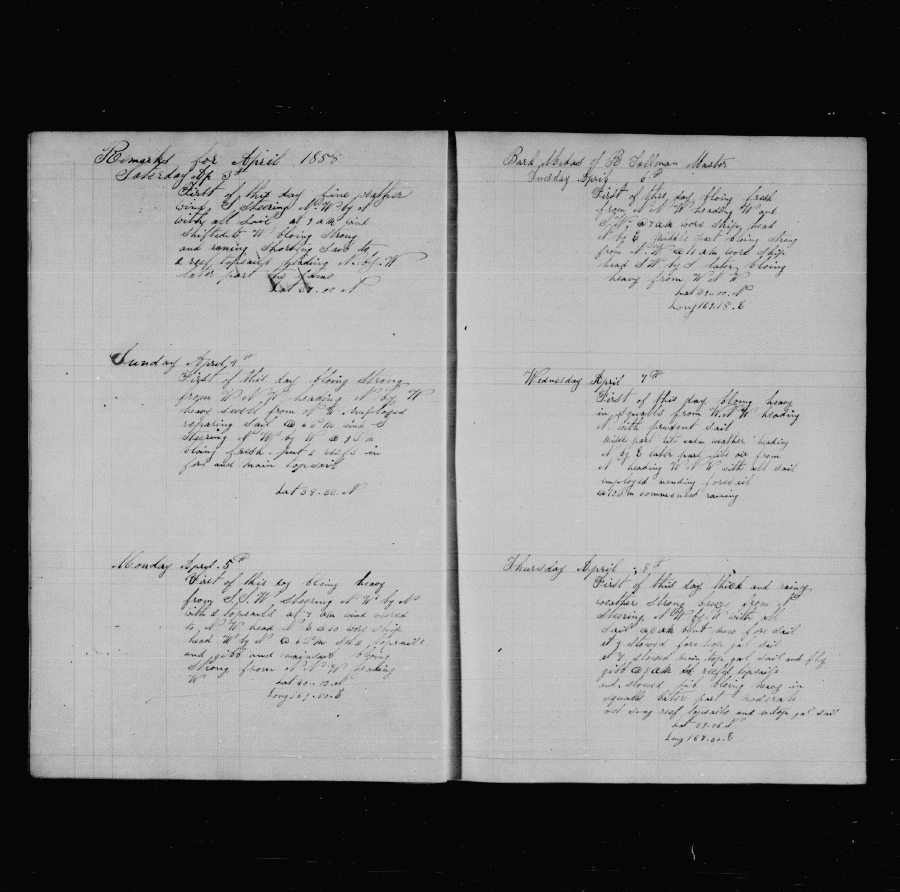 Remarks for April 1858
Saterday Ap 3d
First of this day fine weather
wind S Steering N W by N
with all sail at 9 am wind
shifted to W bloing strong
and raning shorting sail to
2 reef topsails heading N by W
later part the same
Lat 00 N
Sunday April 4th
First of this day bloing strong
from W N W heading N by W
heavy swell from N W employed
reparing sail @ 6 PM wind S
Steering N W by W @ 9 PM
bloing fresh put 2 reefs in
fore and main topsail
Lat 39-20 N
Monday April 5th
First of this day bloing heavy
from S.S.W Steering N W by N
with 2 topsails at 7 am wind
to N W head N E @ 10 wore ship
head W by N @ 6 PM topsails
and gibb and mainsail bloing
strong from N N W heading
W
Lat 40-00 N
Long 167-00 E
Bark of R Tallman Master
Tuesday April 6th
First of this day bloing fresh
from N N W heading W and
S W @ 7 am wore ship head
N by E middle part bloing strong
from N W @ 10 am wore ship
head S W by S later bloing
heavy from W N W
Lat 39-00 N
Long 167-18 E
Wednesday April 7th
First of this day bloing heavy
in squalls from W N W heading
N with prudent sail
midle part lite calm weather heading
N by E later part lite air from
N heading W N W with all sail
employed mending foresail
@ PM commenced raning
Thursday April 8th
First of this day thick and rainy
weather strong breeze from N
Steering N W by W with all
sail @ 2 am bent new fore sail
at 4 stowed fore top gal sail
at 7 stowed main top gal sail and fly
gibb @ 9 am reefed topsails
and stowed jib bloing heavy in
squals later part moderate
out reef topsails and topgal sail
Lat 06 N
Long 168-00 E